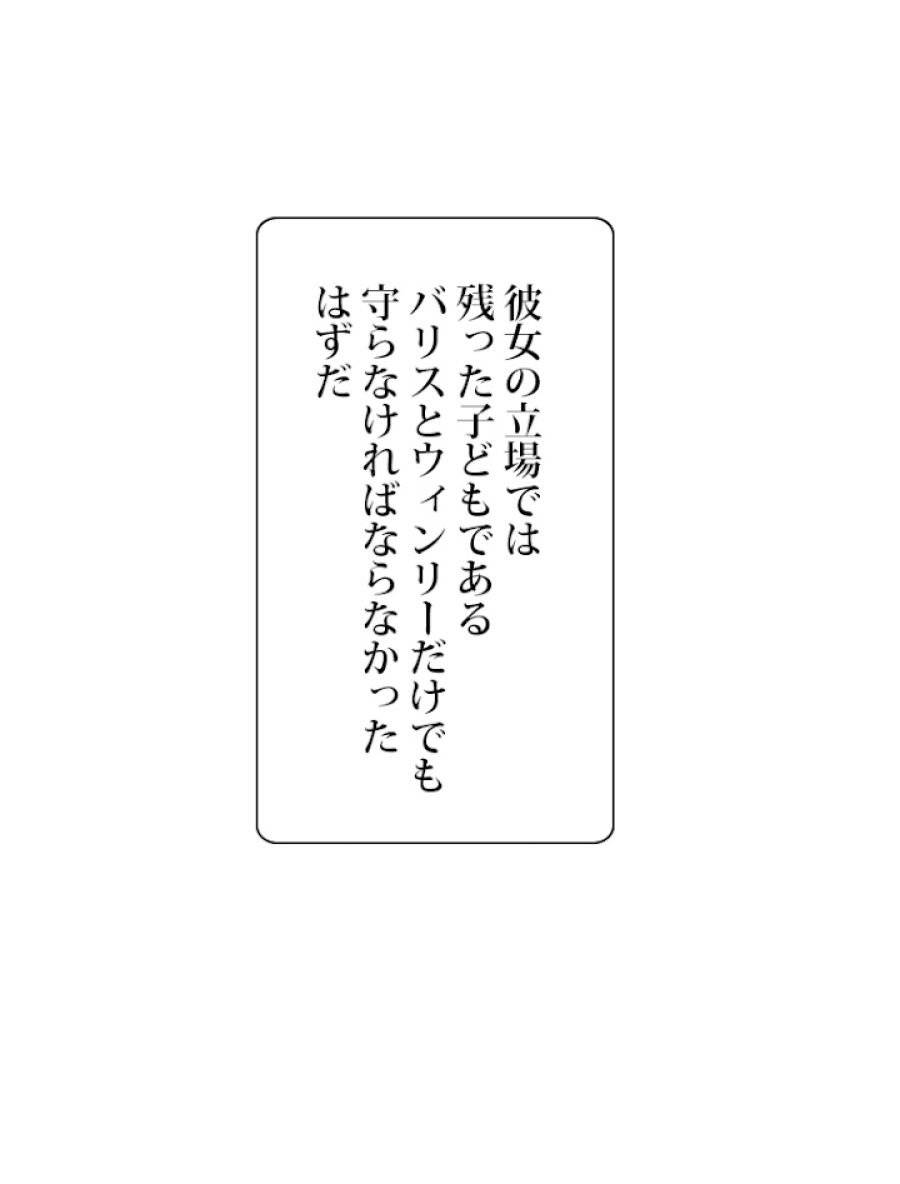 彼女の立場では
残った子どもである
バリスとウィンリーだけでも
守らなければならなかった
はずだ